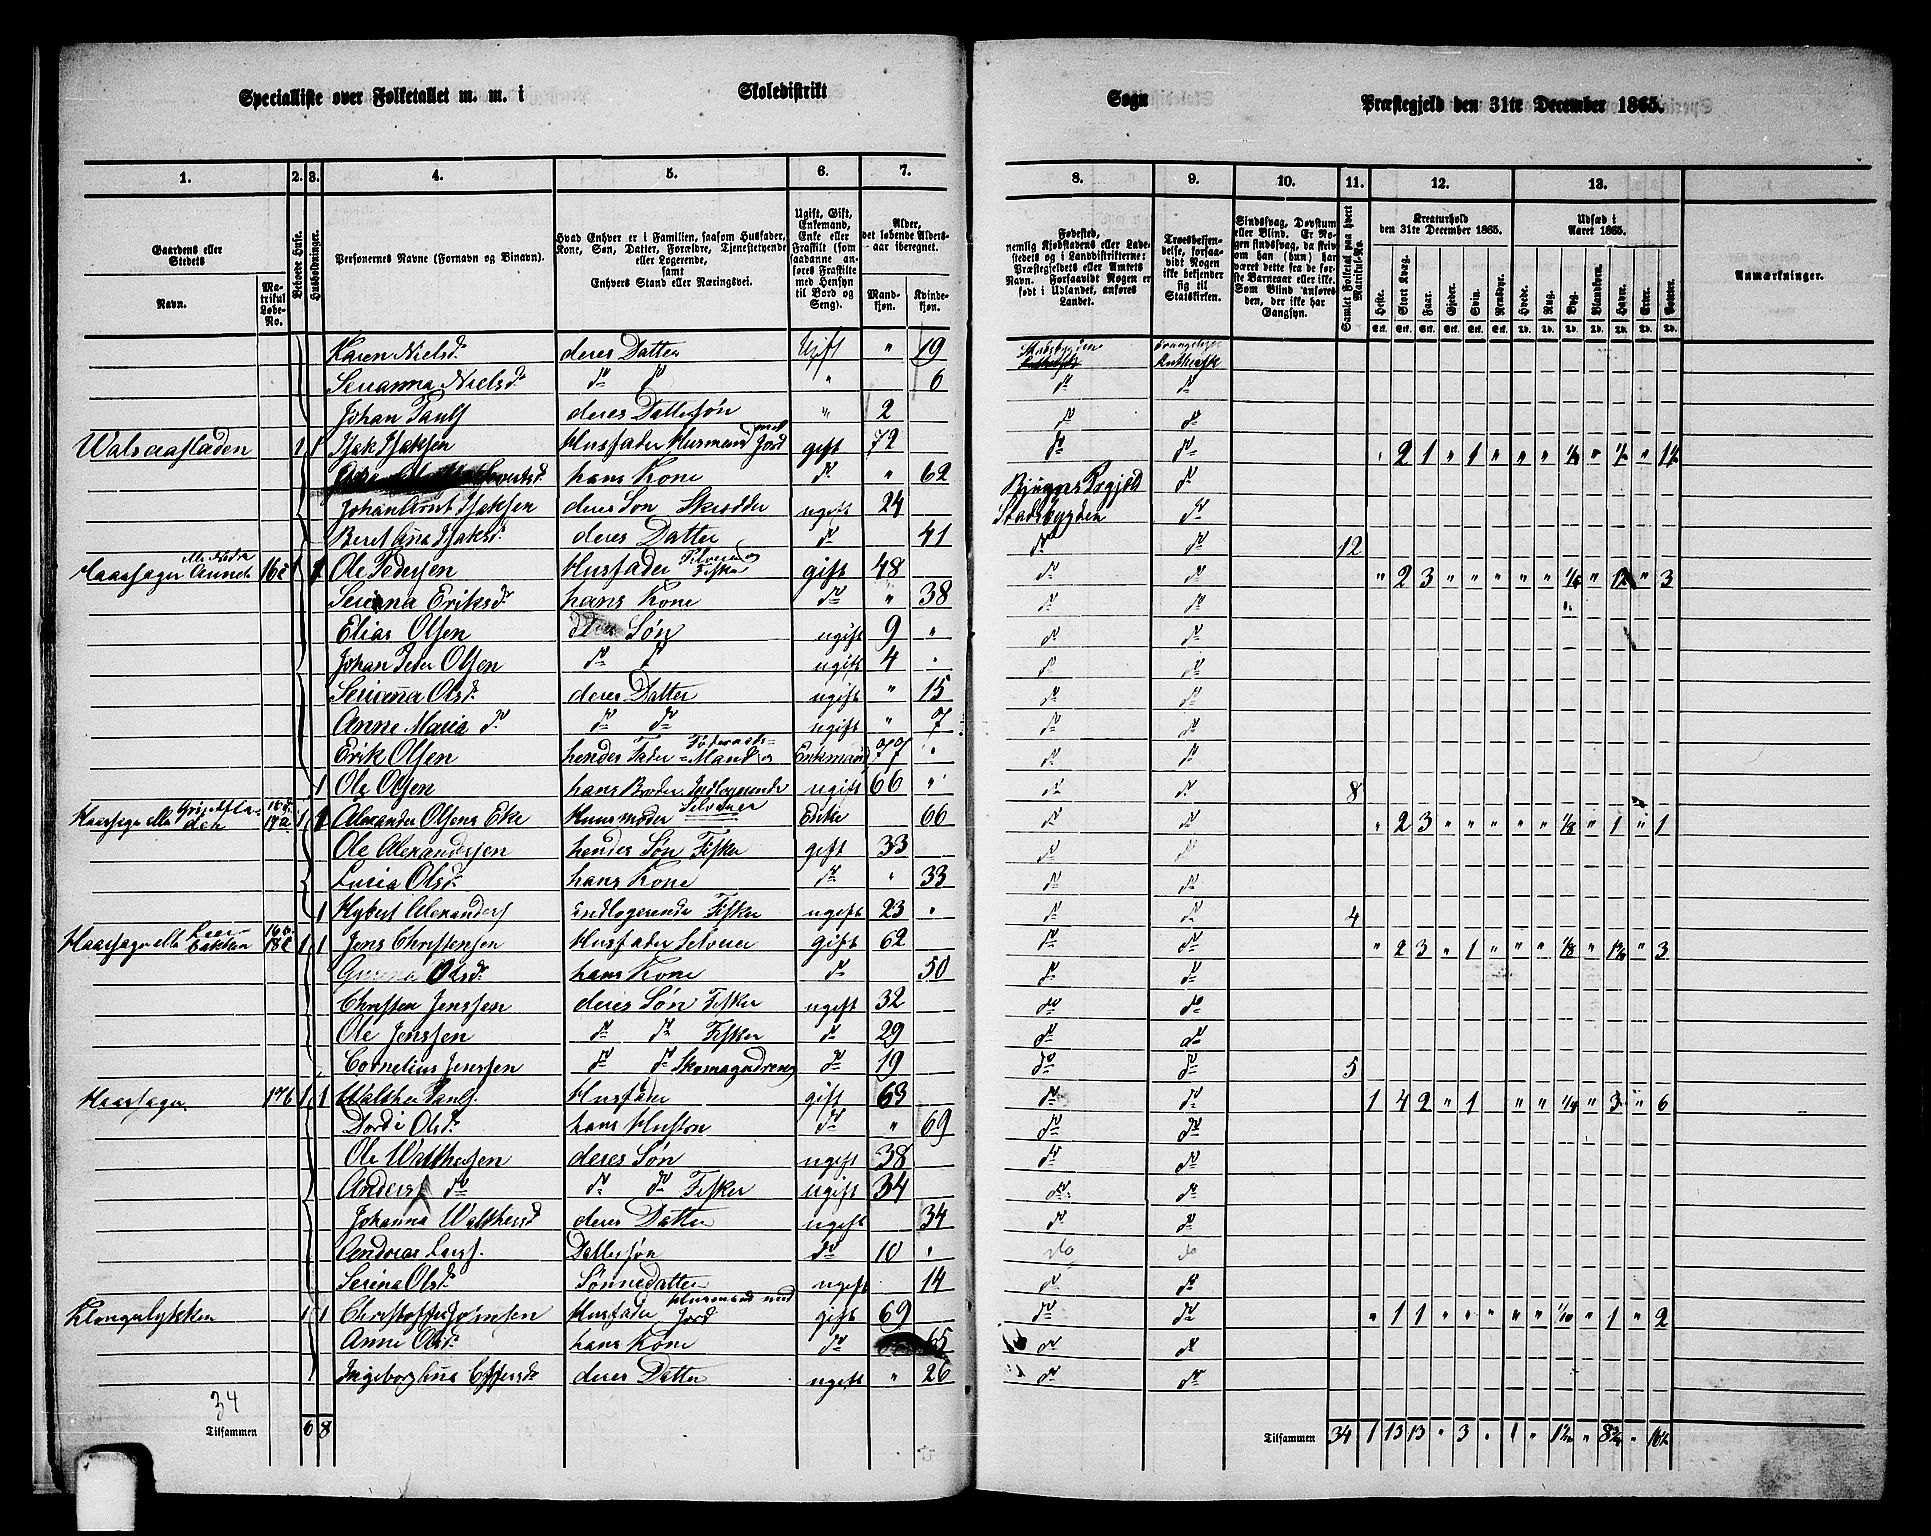 Specialliste over Folketallet m. m. i Skoledistrikt Sogn Præstegjeld den 31te December 1865.
1. 2. 3. 4. 5. 6. 7. 8. 9. 10. 11. 12. 13.
Gaardens eller Stedets
Navn.
Matrikul Løbe-No.
Beboede Huse.
Husholdninger.
Personernes Navne (Fornavn og Binavn).
Hvad Enhver er i Familien, saasom Husfader, Kone, Søn, Datter, Forældre, Tjenestetyende eller Logerende, samt Enhvers Stand eller Næringsvei.
Ugift, Gift, Enkemand, Enke eller Fraskilt (som saadanne anføres Fraskilte med Hensyn til Bord og Seng).
Alder, det løbende Alders-aar iberegnet.
Mandkjøn. Kvindekjøn.
Fødested, nemlig Kjøbstadens eller Ladestedets og i Landdistrikterne: Præstegjeldets eller Amtets Navn. Forsaavidt Nogen er født i Udlandet, anføres Landet.
Troesbekjendelse, forsaavidt Nogen ikke bekjender sig til Statskirken.
Sindssvag, Døvstum eller Blind. Er Nogen sindssvag, da skrives om han (hun) har været dette fra de første Barneaar eller ikke. Som Blind anføres den, der ikke har Gangsyn.
Samlet Folketal paa hvert Matrikul-No.
Kreaturhold den 31te December 1865.
Heste. Stort Kvæg. Faar. Gjeder. Svin. Rensdyr.
Udsæd i Aaret 1865.
Hvede. Rug. Byg. Blandkorn. Havre. Erter. Poteter.
Anmærkninger.
Karen Nielsd. deres Datter Ugift " 19 Stadsbygden Evangelisk Luthersk
Serianna Nielsd. do do " 6 do do
Johan Pauls deres Dattersøn " 2 do do
Walsaasladen 1 1 Isak Isaksen Husfader Husmand med Jord gift 72 do do " 2 1 " 1 " " "
hans Kone do " 62 Bjugns Prgjeld do
Johan Arnt Isaksen deres Søn Skrædder ugift 24 Stadsbygden do
Beret Ana Isaksd. deres Datter do 41 do do 12
Haarsager 16c 1 1 Ole Pedersen Husfader Selveier og Fisker gift 48 do do " 2 3 " " " " " " " 3
Seriana Eriksd. hans Kone do " 38 do do
Elias Olsen deres Søn ugift 9 " do do
Johan Peder Olsen do do ugift 4 " do do
Serianna Olsd. deres Datter ugift " 15 do do
Anne Maria do do do ugift " 7 do do
Erik Olsen hendes Fader Føderaads-Mand og Enkemand 77 " do do
1 Ole Olsen hans Broder Inlogerende ugift 66 " do do 8
Haarsager eller 1 1 Alexander Olsens Eke Huusmoder Selveier Enke 66 do do " 2 3 " " " " " 1/8 " 1 " 1
Ole Alexandersen hendes Søn Fisker gift 33 do do
Lusia Olsd. hans Kone do " 33 do do
1 Hybert Alexanders Indlogerende Fisker ugift 23 " do do 4
Haarsager eller Leerbakken 1 1 Jens Christensen Husfader Selveier gift 62 do do " 2 3 " 1 " " " 1/8 " " 3
Olsd. hans Kone do 50 do do
Christen Jenssen deres Søn Fisker ugift 32 do do
Ole Jenssen do do Fisker do 29 do do
Cornelius Jenssen do do Skomagudreng do 19 do do 5
Haarsager 17b 1 1 Walther Pauls. Husfader gift 63 do do 1 4 2 " 1 " " 1/4 " 3 " 6
Dordi Olsd. hans Huston do " 69 do do
Ole Walthersen deres Søn ugift 38 do do
Anders do do do Fisker ugift 34 do do
Johanna Walthersd deres Datter ugift 34 do do
Andreas Lars. Dattersøn do 10 " do do
Serina Olsd. Sønnedatter ugift 14 do do
Klongulykken 1 1 Husfader Husmand med Jord gift 69 do do " 1 1 " " " " " 1/10 " 1 " 2
Anne Olsd. hans Kone do 65 do do
Ingeborg Ana deres Datter ugift " 26 do do
34
Tilsammen 6 8 Tilsammen 34 1 13 13 " 3 "